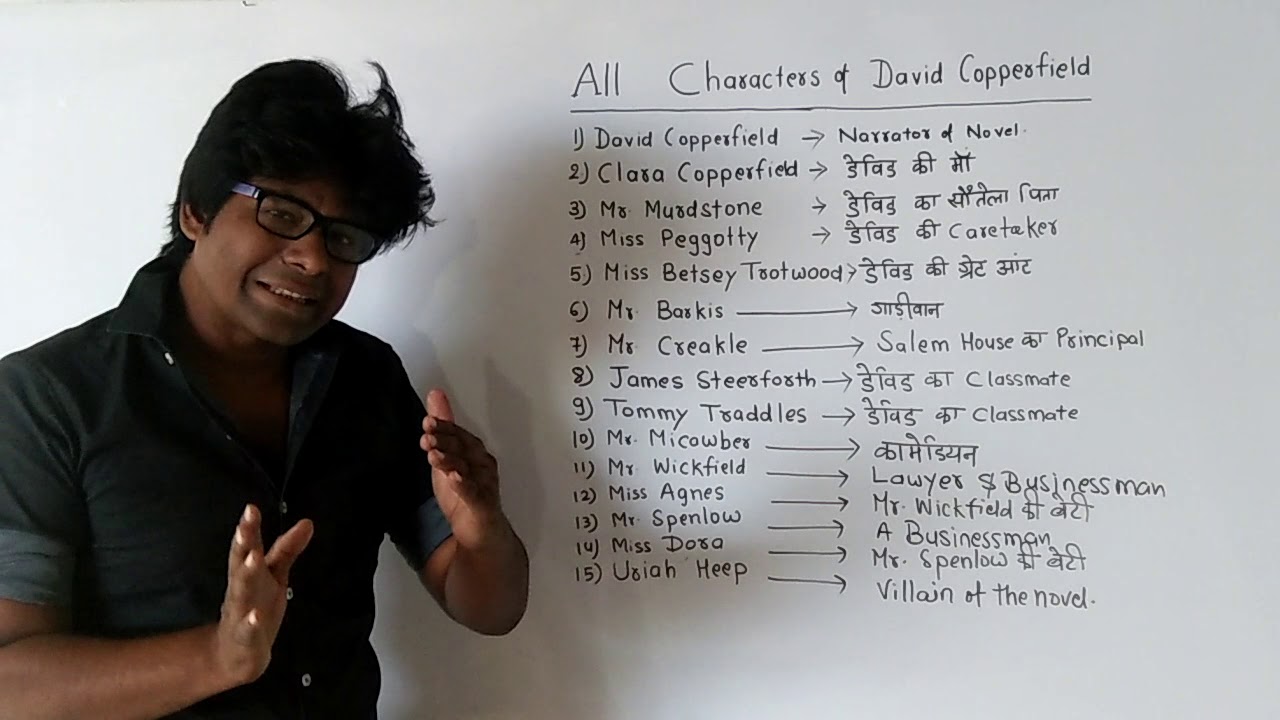 All Characters of David Copperfield
1) David Copperfield → Narrator of Novel.
2) Clara Copperfield → डेविड की माँ
3) Mr. Murdstone → डेविड का सौतेला पिता
4) Miss Peggotty → डेविड की Caretaker
5) Miss Betsey Trotwood > डेविड की ग्रेट आंट
6) Mr. Barkis → गाड़ीवान
7) Mr. Creakle → Salem House का Principal
8) James Steerforth → डेविड का Classmate
9) Tommy Traddles → डेविड का Classmate
10) Mr. Micowber → कामेडियन
11) Mr. Wickfield → Lawyer & Businessman
12) Miss Agnes → Mr. Wickfield की बेटी
13) Mr. Spenlow → A Businessman
14) Miss Dora → Mr. Spenlow की बेटी
15) Uriah Heep → Villain of the novel.